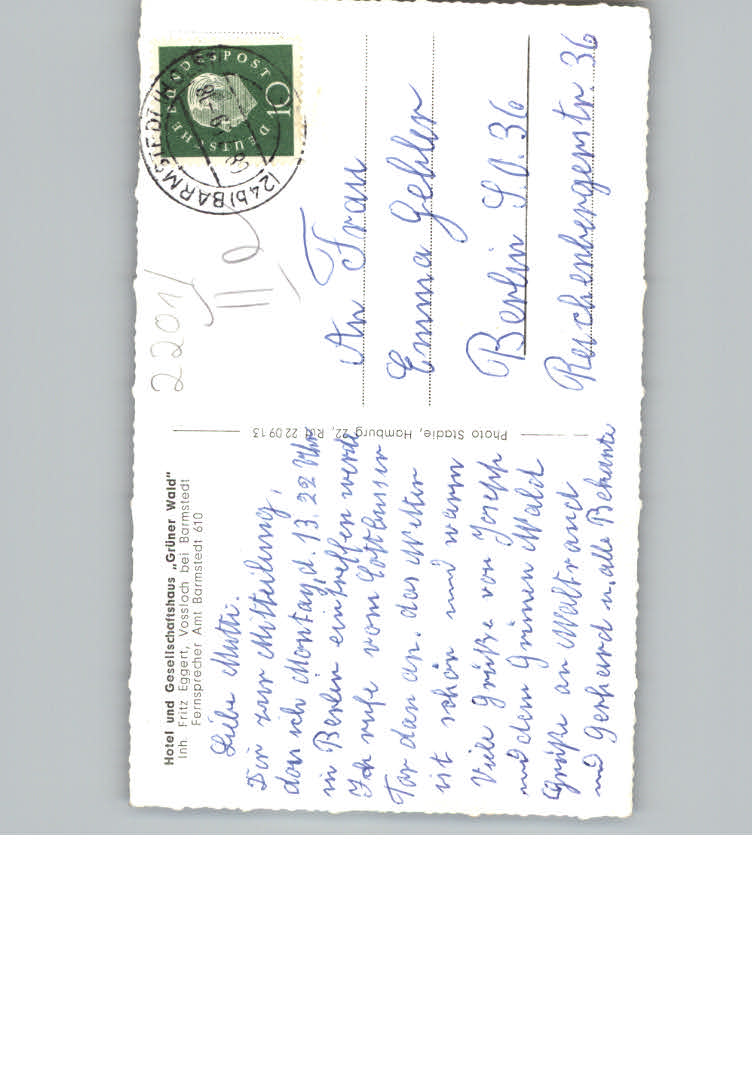 Hotel und Gesellschaftshaus „Grüner Wald"
Inh. Fritz Eggert, Vossloch bei Barmstedt
Fernsprecher Amt Barmstedt 610
Liebe Mutti.
Dir zur Mitteilung,
das ich Montag, d. 13. 22 Uhr
in Berlin eintreffen werde
Ich rufe vom Cottbusser
Tor dan an. das Wetter
ist schön und warm
Viele Grüße von Joseph
und dem Grünen Wald
Grüße an Waltraud
und Gerhard u. alle Bekante
Photo Stadie, Hamburg 22, Ruf 22 09 13
2201/
DEUTSCHE BUNDESPOST
10
(24b) BARMSTEDT (HOLST)
An Frau
Emma Gehler
Berlin S.O. 36
Reichenbergerstr. 36